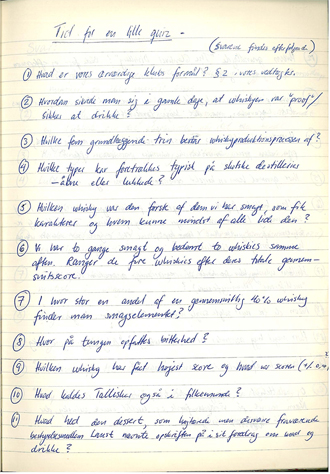 Tid for en lille quiz -
(Svarene findes efterfølgende)
① Hvad er vores ærværdige klubs formål? § 2 - vores vedtægter.
② Hvordan sikrede man sig i gamle dage, at whiskyen var "proof"/
sikker at drikke?
③ Hvilke fem grundlæggende trin består whiskyproduktionsprocessen af?
④ Hvilke typer kar foretrækkes typisk på skotske destillerier
- åbne eller lukkede?
⑤ Hvilken whisky var den første af dem vi har smagt, som fik
karakterer og hvem kunne mindst af alle lide den?
⑥ Vi har to gange smagt og bedømt to whiskies samme
aften. Ranger de fire whiskies efter deres totale gennem-
snitsscore.
⑦ I hvor stor en andel af en gennemsnitlig 40% whisky
finder man smagselementet?
⑧ Hvor på tungen opfattes bitterhed?
⑨ Hvilken whisky har fået højest score og hvad var scoren
⑩ Hvad kaldes Talisker også i folkemunde?
⑪ Hvad hed den dessert, som højtærede men desværre fraværende
bestyrelsesmedlem Laust nævnte opskriften på i sit foredrag om mad og
drikke?